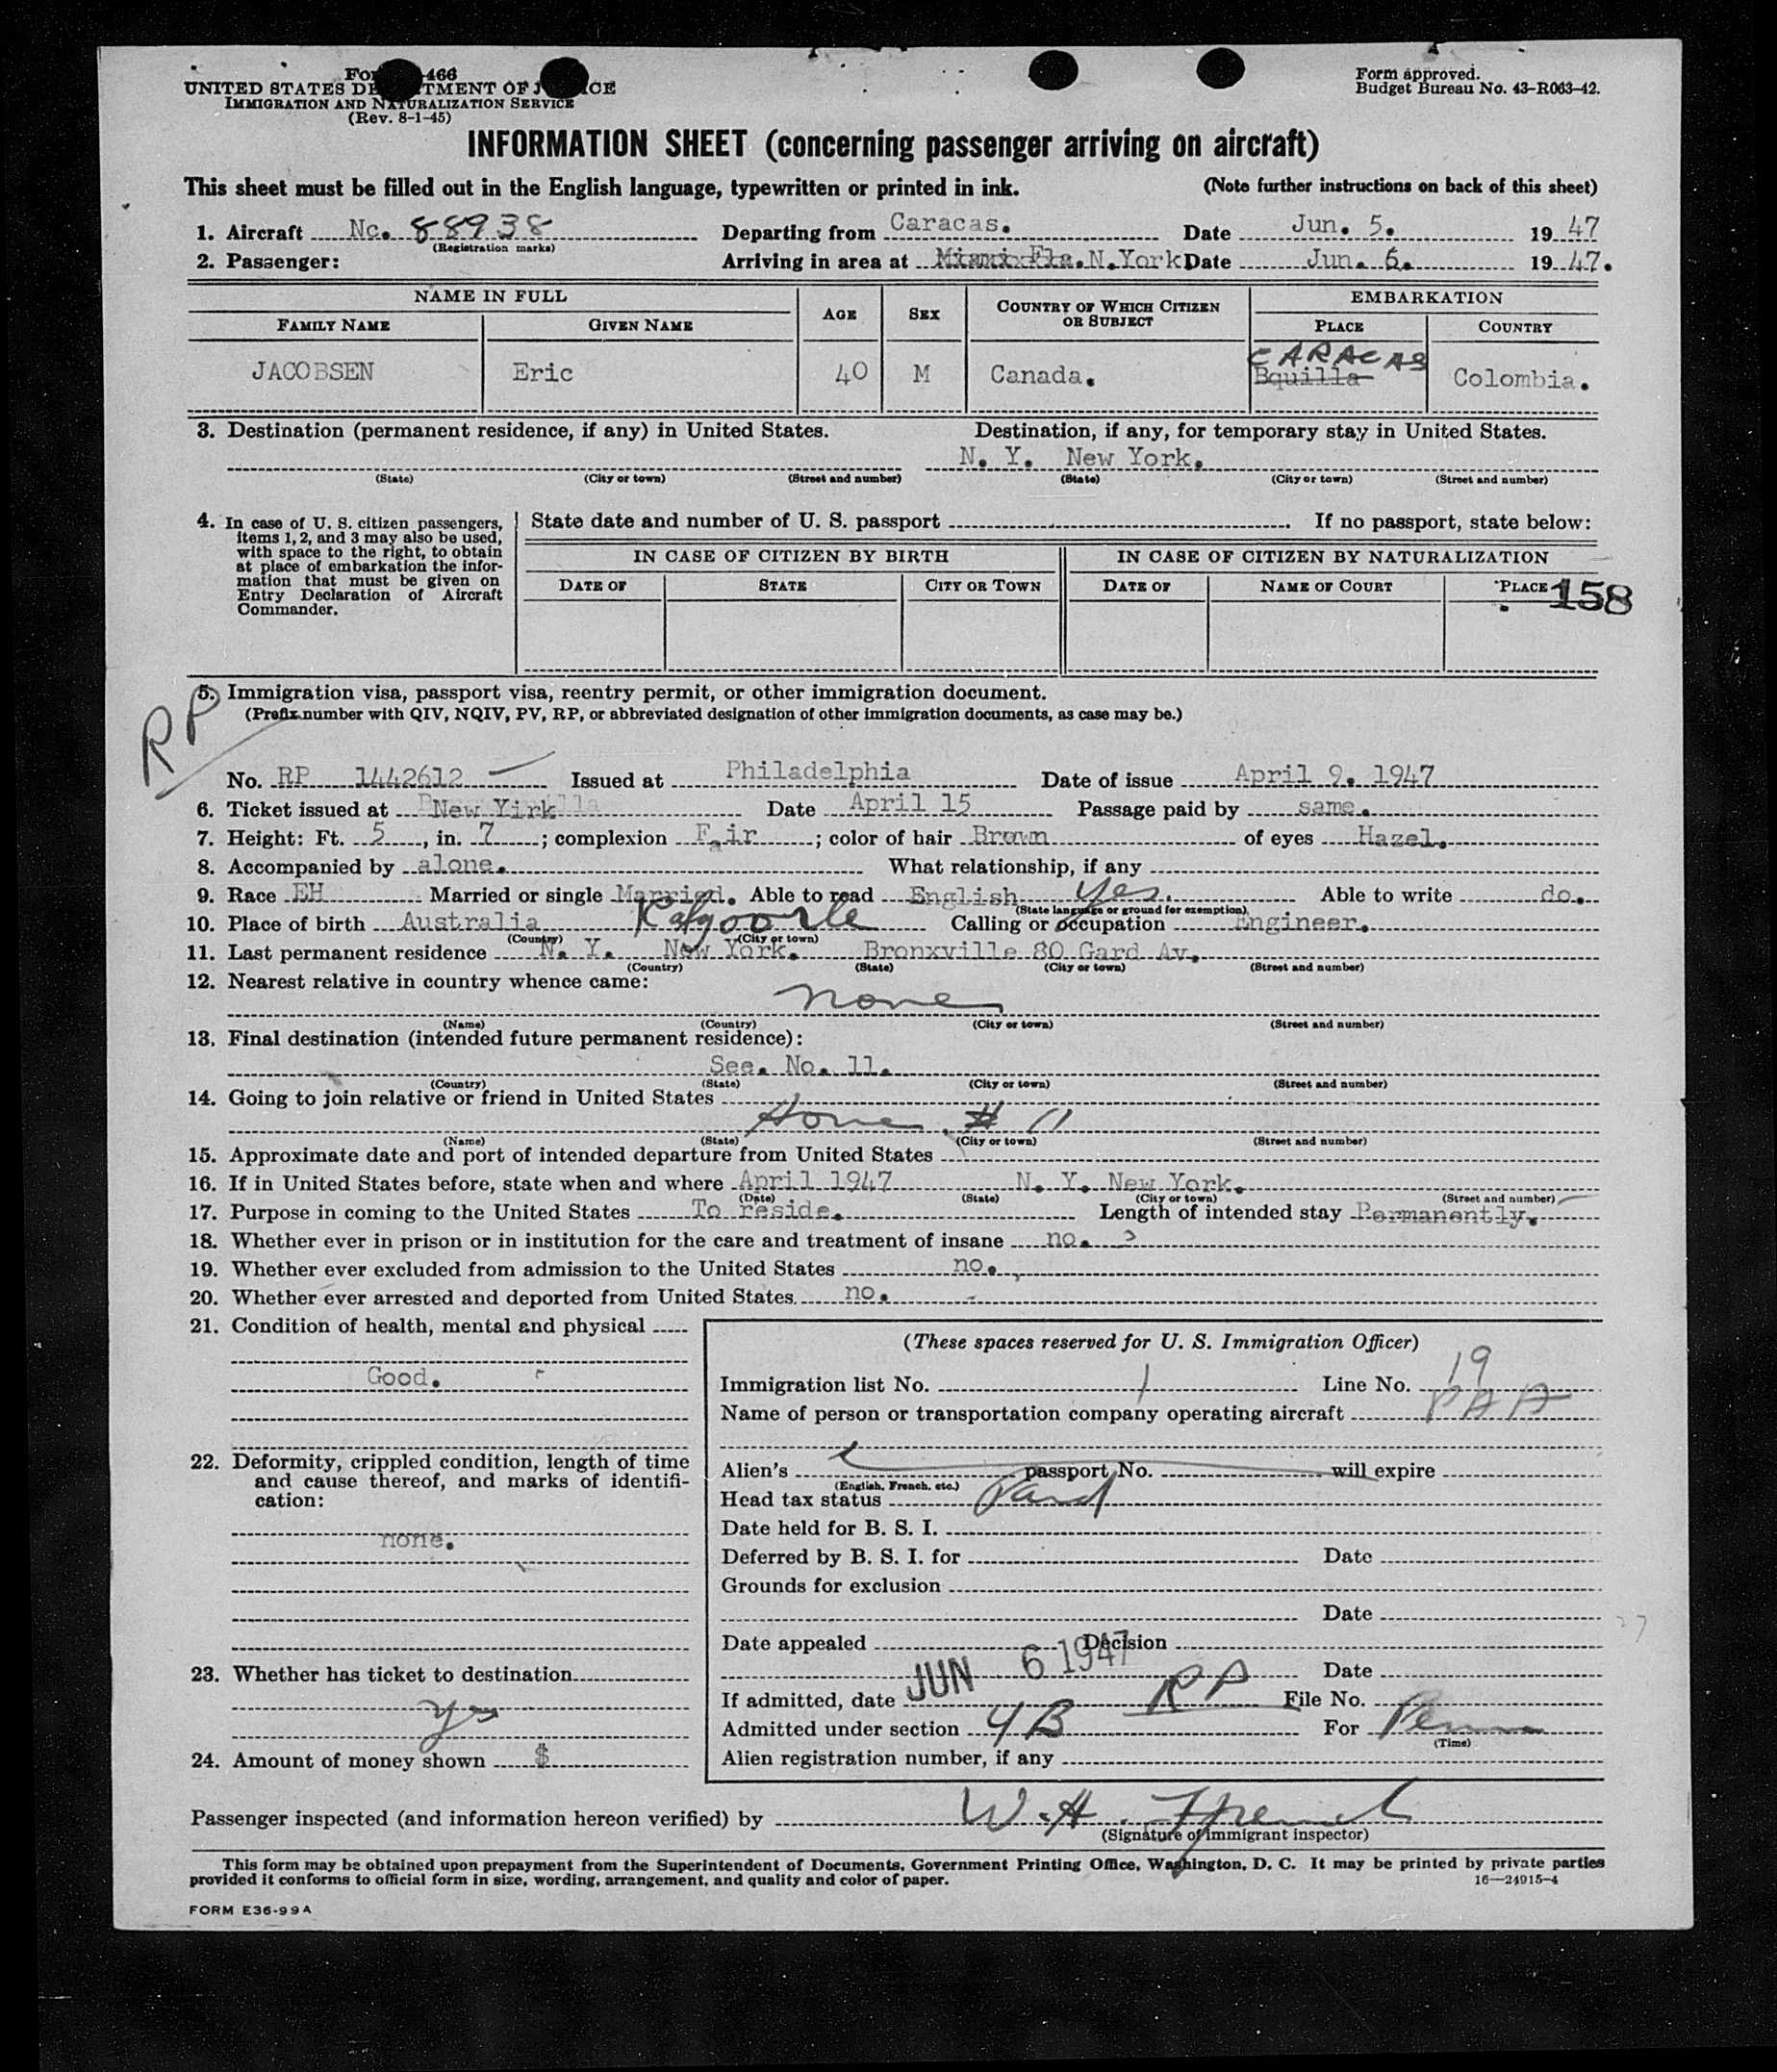 Form 466
UNITED STATES DEPARTMENT OF JUSTICE
IMMIGRATION AND NATURALIZATION SERVICE
(Rev. 8-1-45)
Form approved.
Budget Bureau No. 43-R063-42.
INFORMATION SHEET (concerning passenger arriving on aircraft)
This sheet must be filled out in the English language, typewritten or printed in ink. (Note further instructions on back of this sheet)
1. Aircraft Nc. 88938 Departing from Caracas. Date Jun. 5. 1947
(Registration marks)
2. Passenger: Arriving in area at Miami Fla. N.York Date Jun. 6. 1947.
NAME IN FULL AGE SEX COUNTRY OF WHICH CITIZEN OR SUBJECT EMBARKATION
FAMILY NAME GIVEN NAME PLACE COUNTRY
CARACAS
JACOBSEN Eric 40 M Canada. Bquilla Colombia.
3. Destination (permanent residence, if any) in United States. Destination, if any, for temporary stay in United States.
N. Y. New York.
(State) (City or town) (Street and number) (State) (City or town) (Street and number)
4. In case of U. S. citizen passengers, items 1, 2, and 3 may also be used, with space to the right, to obtain at place of embarkation the information that must be given on Entry Declaration of Aircraft Commander.
State date and number of U. S. passport . If no passport, state below:
IN CASE OF CITIZEN BY BIRTH IN CASE OF CITIZEN BY NATURALIZATION
DATE OF STATE CITY OR TOWN DATE OF NAME OF COURT PLACE
158
RP
5. Immigration visa, passport visa, reentry permit, or other immigration document.
(Prefix number with QIV, NQIV, PV, RP, or abbreviated designation of other immigration documents, as case may be.)
No. RP 1442612 Issued at Philadelphia Date of issue April 9. 1947
6. Ticket issued at New Yirk Date April 15 Passage paid by same.
7. Height: Ft. 5, in. 7; complexion Fair; color of hair Brown of eyes Hazel.
8. Accompanied by alone. What relationship, if any
9. Race EH Married or single Married. Able to read English yes. Able to write do.
(State language or ground for exemption)
10. Place of birth Australia Kalgoorle Calling or occupation Engineer.
(Country) (City or town)
11. Last permanent residence N. Y. New York. Bronxville 80 Gard Av.
(Country) (State) (City or town) (Street and number)
12. Nearest relative in country whence came:
none
(Name) (Country) (City or town) (Street and number)
13. Final destination (intended future permanent residence):
See. No. 11.
(Country) (State) (City or town) (Street and number)
14. Going to join relative or friend in United States
Home. # 11
(Name) (State) (City or town) (Street and number)
15. Approximate date and port of intended departure from United States
16. If in United States before, state when and where April 1947 N. Y. New York.
(Date) (State) (City or town) (Street and number)
17. Purpose in coming to the United States To reside. Length of intended stay Permanently.
18. Whether ever in prison or in institution for the care and treatment of insane no.
19. Whether ever excluded from admission to the United States no.
20. Whether ever arrested and deported from United States. no.
21. Condition of health, mental and physical
Good.
22. Deformity, crippled condition, length of time and cause thereof, and marks of identification:
none.
23. Whether has ticket to destination
yes
24. Amount of money shown $
(These spaces reserved for U. S. Immigration Officer)
Immigration list No. 1 Line No. 19
Name of person or transportation company operating aircraft PAA
Alien's passport No. will expire
(English, French, etc.)
Head tax status Paid
Date held for B. S. I.
Deferred by B. S. I. for Date
Grounds for exclusion
Date
Date appealed Decision
Date
If admitted, date JUN 6 1947 RP File No.
Admitted under section 4B For Perm
(Time)
Alien registration number, if any
Passenger inspected (and information hereon verified) by W. H.
(Signature of immigrant inspector)
This form may be obtained upon prepayment from the Superintendent of Documents, Government Printing Office, Washington, D. C. It may be printed by private parties
provided it conforms to official form in size, wording, arrangement, and quality and color of paper. 16—24915-4
FORM E36-99A